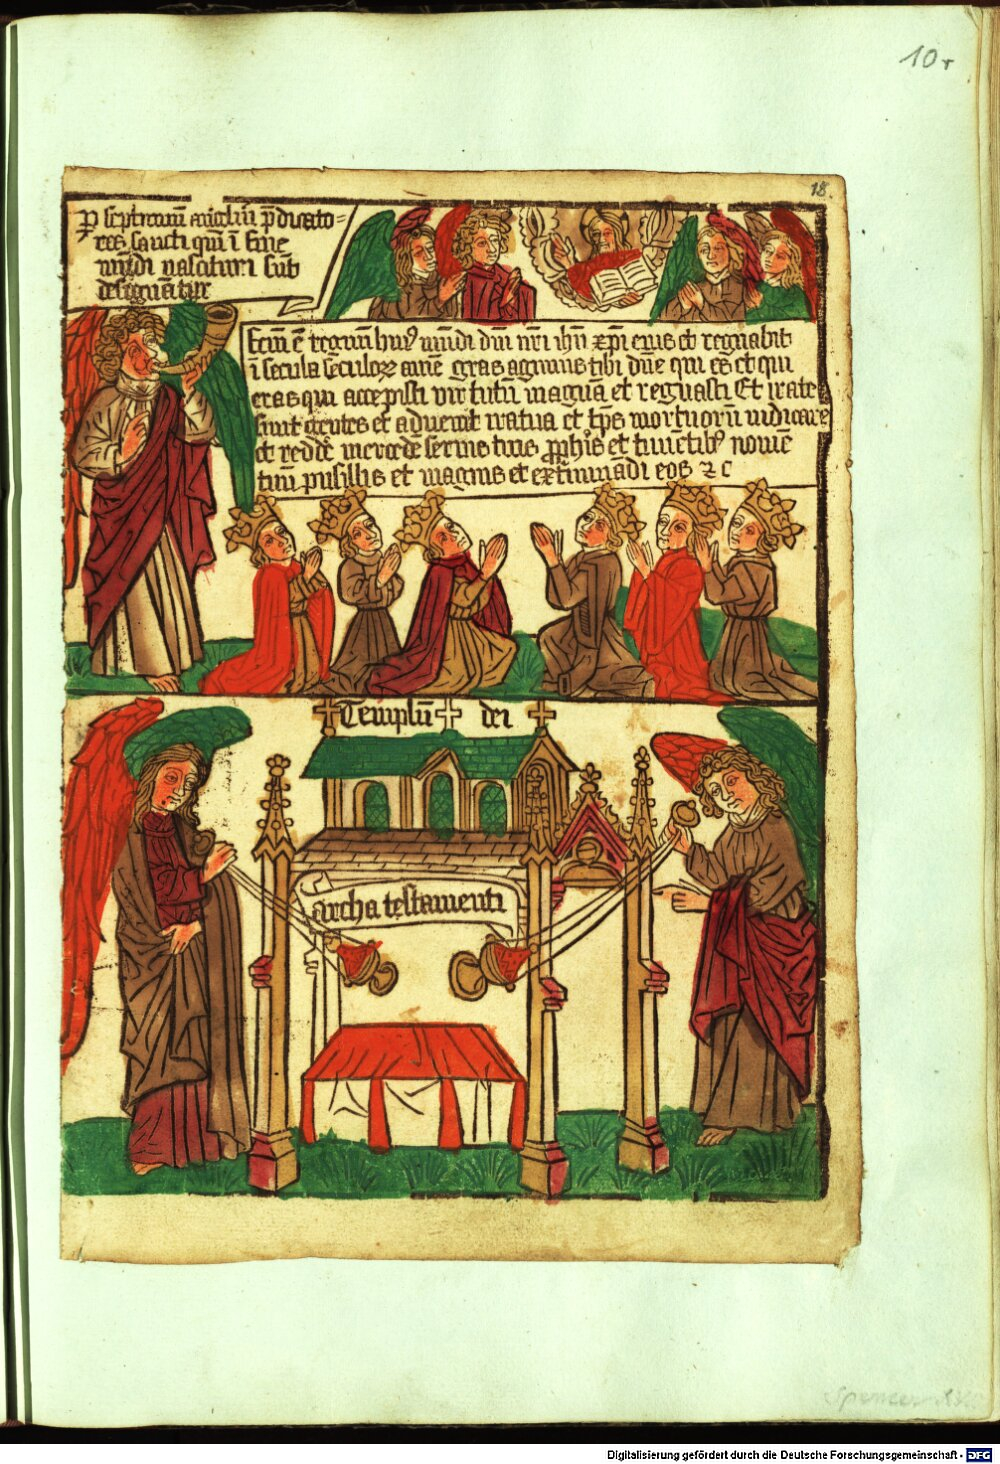 10r
18.
p septimū angelū p̄dicato=
res sancti qui ī fine
mūdi nascituri sūt
designātur
Fcm̄ ē regnū huiꝰ mūdi dm̄i nr̄i ih̄u xp̄i eius et regnabit
ī secula seculoꝝ amē gras agimus tibi dn̄e qui es et qui
eras qui accepisti virtutū magnā et regnasti Et irate
sunt gentes et advenit ira tua et tp̄s mortuorū iudicare
et reddē mercedē servis tuis prophīs et
pusillis et magnis et extermināndi eos ⁊c
Templū dei
archa testamenti
Spencer
Digitalisierung gefördert durch die Deutsche Forschungsgemeinschaft - DFG